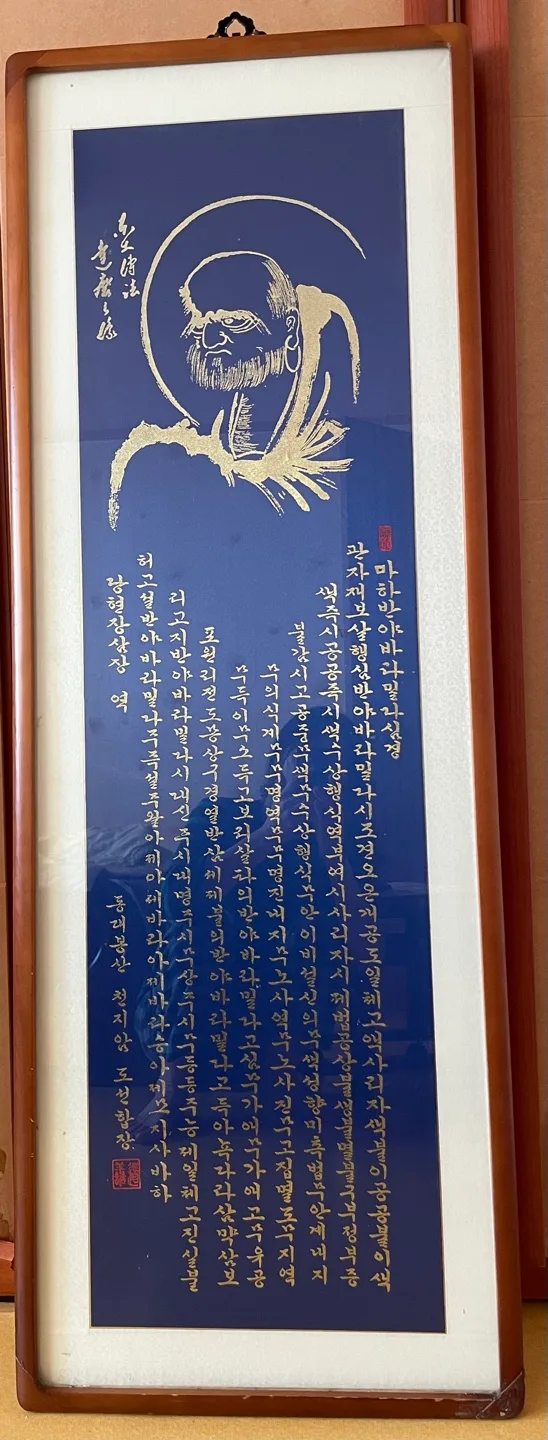 傳法
達磨
마하반야바라밀다심경
관자재보살행심반야바라밀다시조견오온개공도일체고액사리자색불이공공불이색
색즉시공공즉시색수상행식역부여시사리자시제법공상불생불멸불구부정부증
불감시고공중무색무수상행식무안이비설신의무색성향미촉법무안계내지
무의식계무무명역무무명진내지무노사역무노사진무고집멸도무지역
무득이무소득고보리살타의반야바라밀다고심무가애무가애고무유공
포원리전도몽상구경열반삼세제불의반야바라밀다고득아뇩다라삼먁삼보
리고지반야바라밀다시대신주시대명주시무상주시무등등주능제일체고진실불
허고설반야바라밀다주즉설주왈아제아제바라아제바라승아제모지사바하
당현장삼장 역
동래봉산 천지암 도선합장